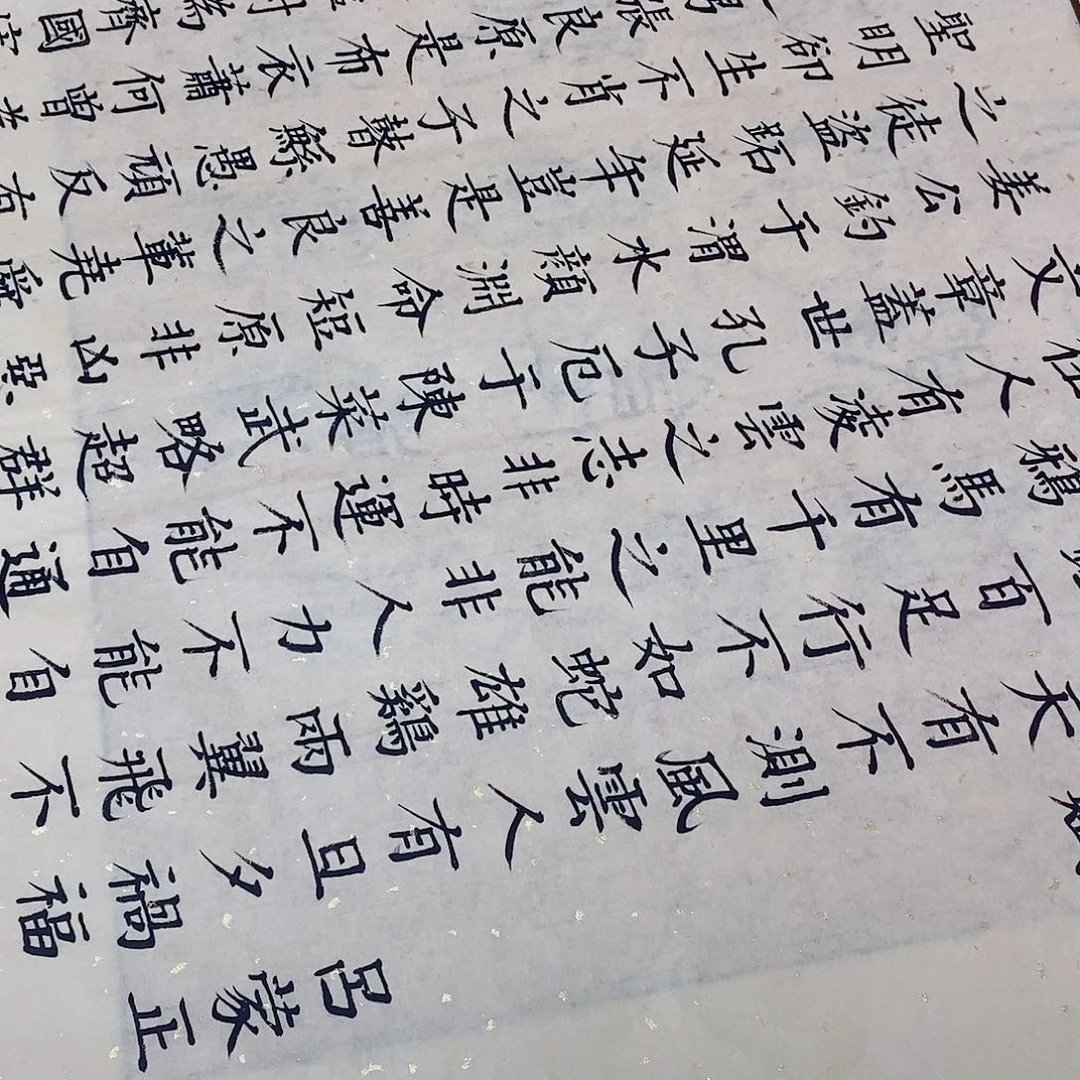 呂蒙正
天有不測風雲人有旦夕禍福
百足行不如蛇雄鷄兩翼飛不
鴉馬有千里之能非人力不能自
人有凌雲之志非時運不能自通
文章蓋世孔子厄于陳蔡武略超群
姜公釣于渭水顏淵命短原非凶惡
之徒盜跖延年豈是善良之輩堯舜
聖明卻生不肖之子瞽鯀愚頑反有
張良原是布衣蕭何曾
齊國